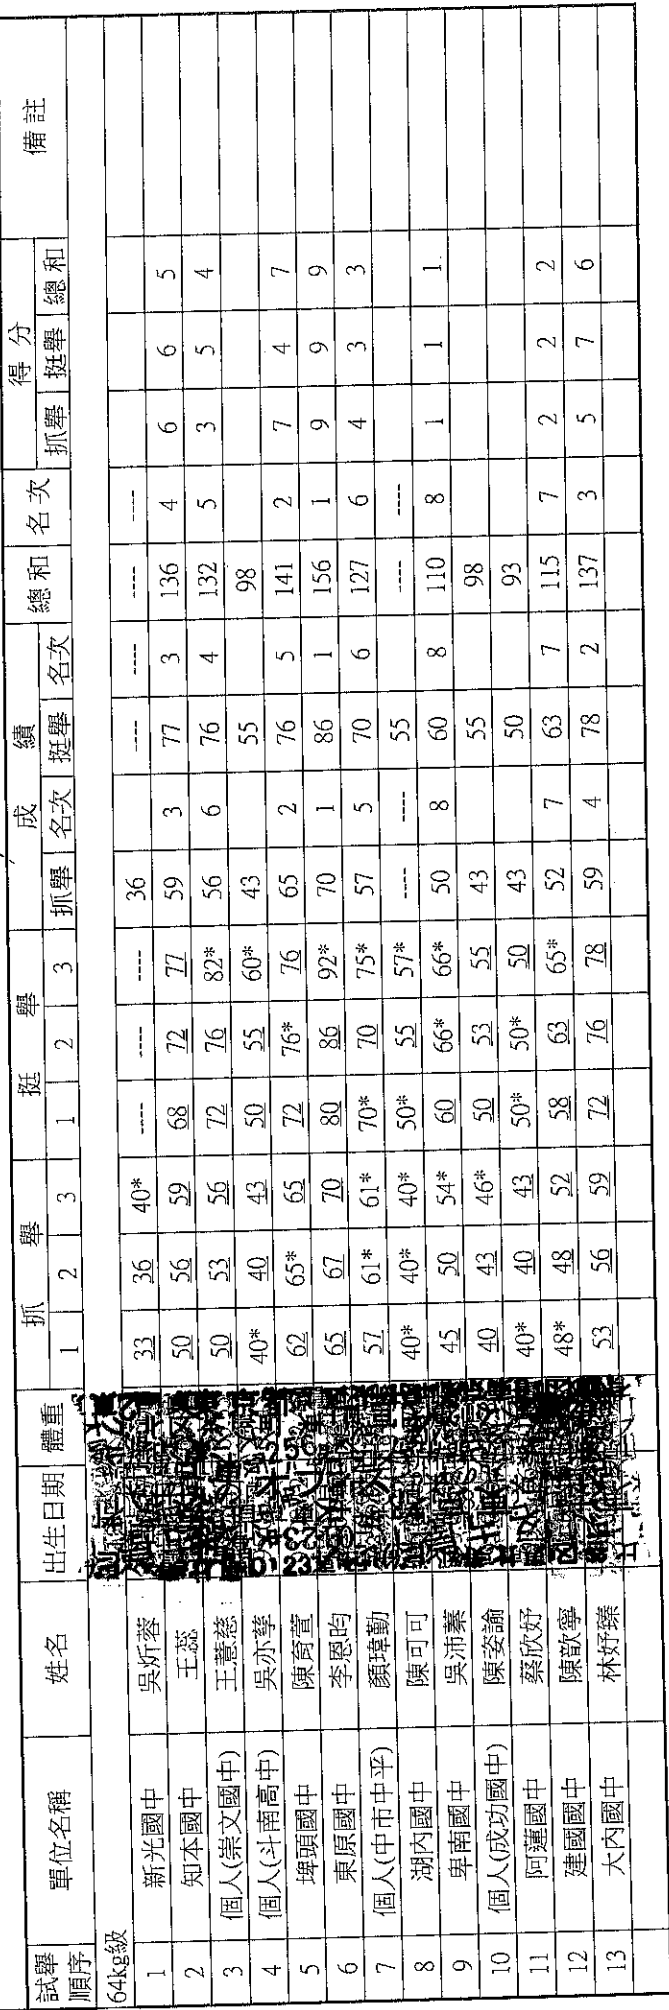 試舉順序 單位名稱 姓名 出生日期 體重 抓舉 挺舉 成績 得分 備註
1 2 3 1 2 3 抓舉 名次 挺舉 名次 總和 名次 抓舉 挺舉 總和
64kg級
1 新光國中 吳炘蓉 33 36 40* ---- ---- ---- 36 ---- ---- ---- ----
2 知本國中 王蕊 50 56 59 68 72 77 59 3 77 3 136 4 6 6 5
3 個人(崇文國中) 王薏慈 50 53 56 72 76 82* 56 6 76 4 132 5 3 5 4
4 個人(斗南高中) 吳亦孳 40* 40 43 50 55 60* 43 55 98
5 埤頭國中 陳育萱 62 65* 65 72 76* 76 65 2 76 5 141 2 7 4 7
6 東原國中 李恩昀 65 67 70 80 86 92* 70 1 86 1 156 1 9 9 9
7 個人(中市中平) 顏瑋勤 57 61* 61* 70* 70 75* 57 5 70 6 127 6 4 3 3
8 湖內國中 陳可可 40* 40* 40* 50* 55 57* ---- ---- 55 ---- ----
9 卑南國中 吳沛蓁 45 50 54* 60 66* 66* 50 8 60 8 110 8 1 1 1
10 個人(成功國中) 陳姿諭 40 43 46* 50 53 55 43 55 98
11 阿蓮國中 蔡欣妤 40* 40 43 50* 50* 50 43 50 93
12 建國國中 陳歆寧 48* 48 52 58 63 65* 52 7 63 7 115 7 2 2 2
13 大內國中 林妤臻 53 56 59 72 76 78 59 4 78 2 137 3 5 7 6